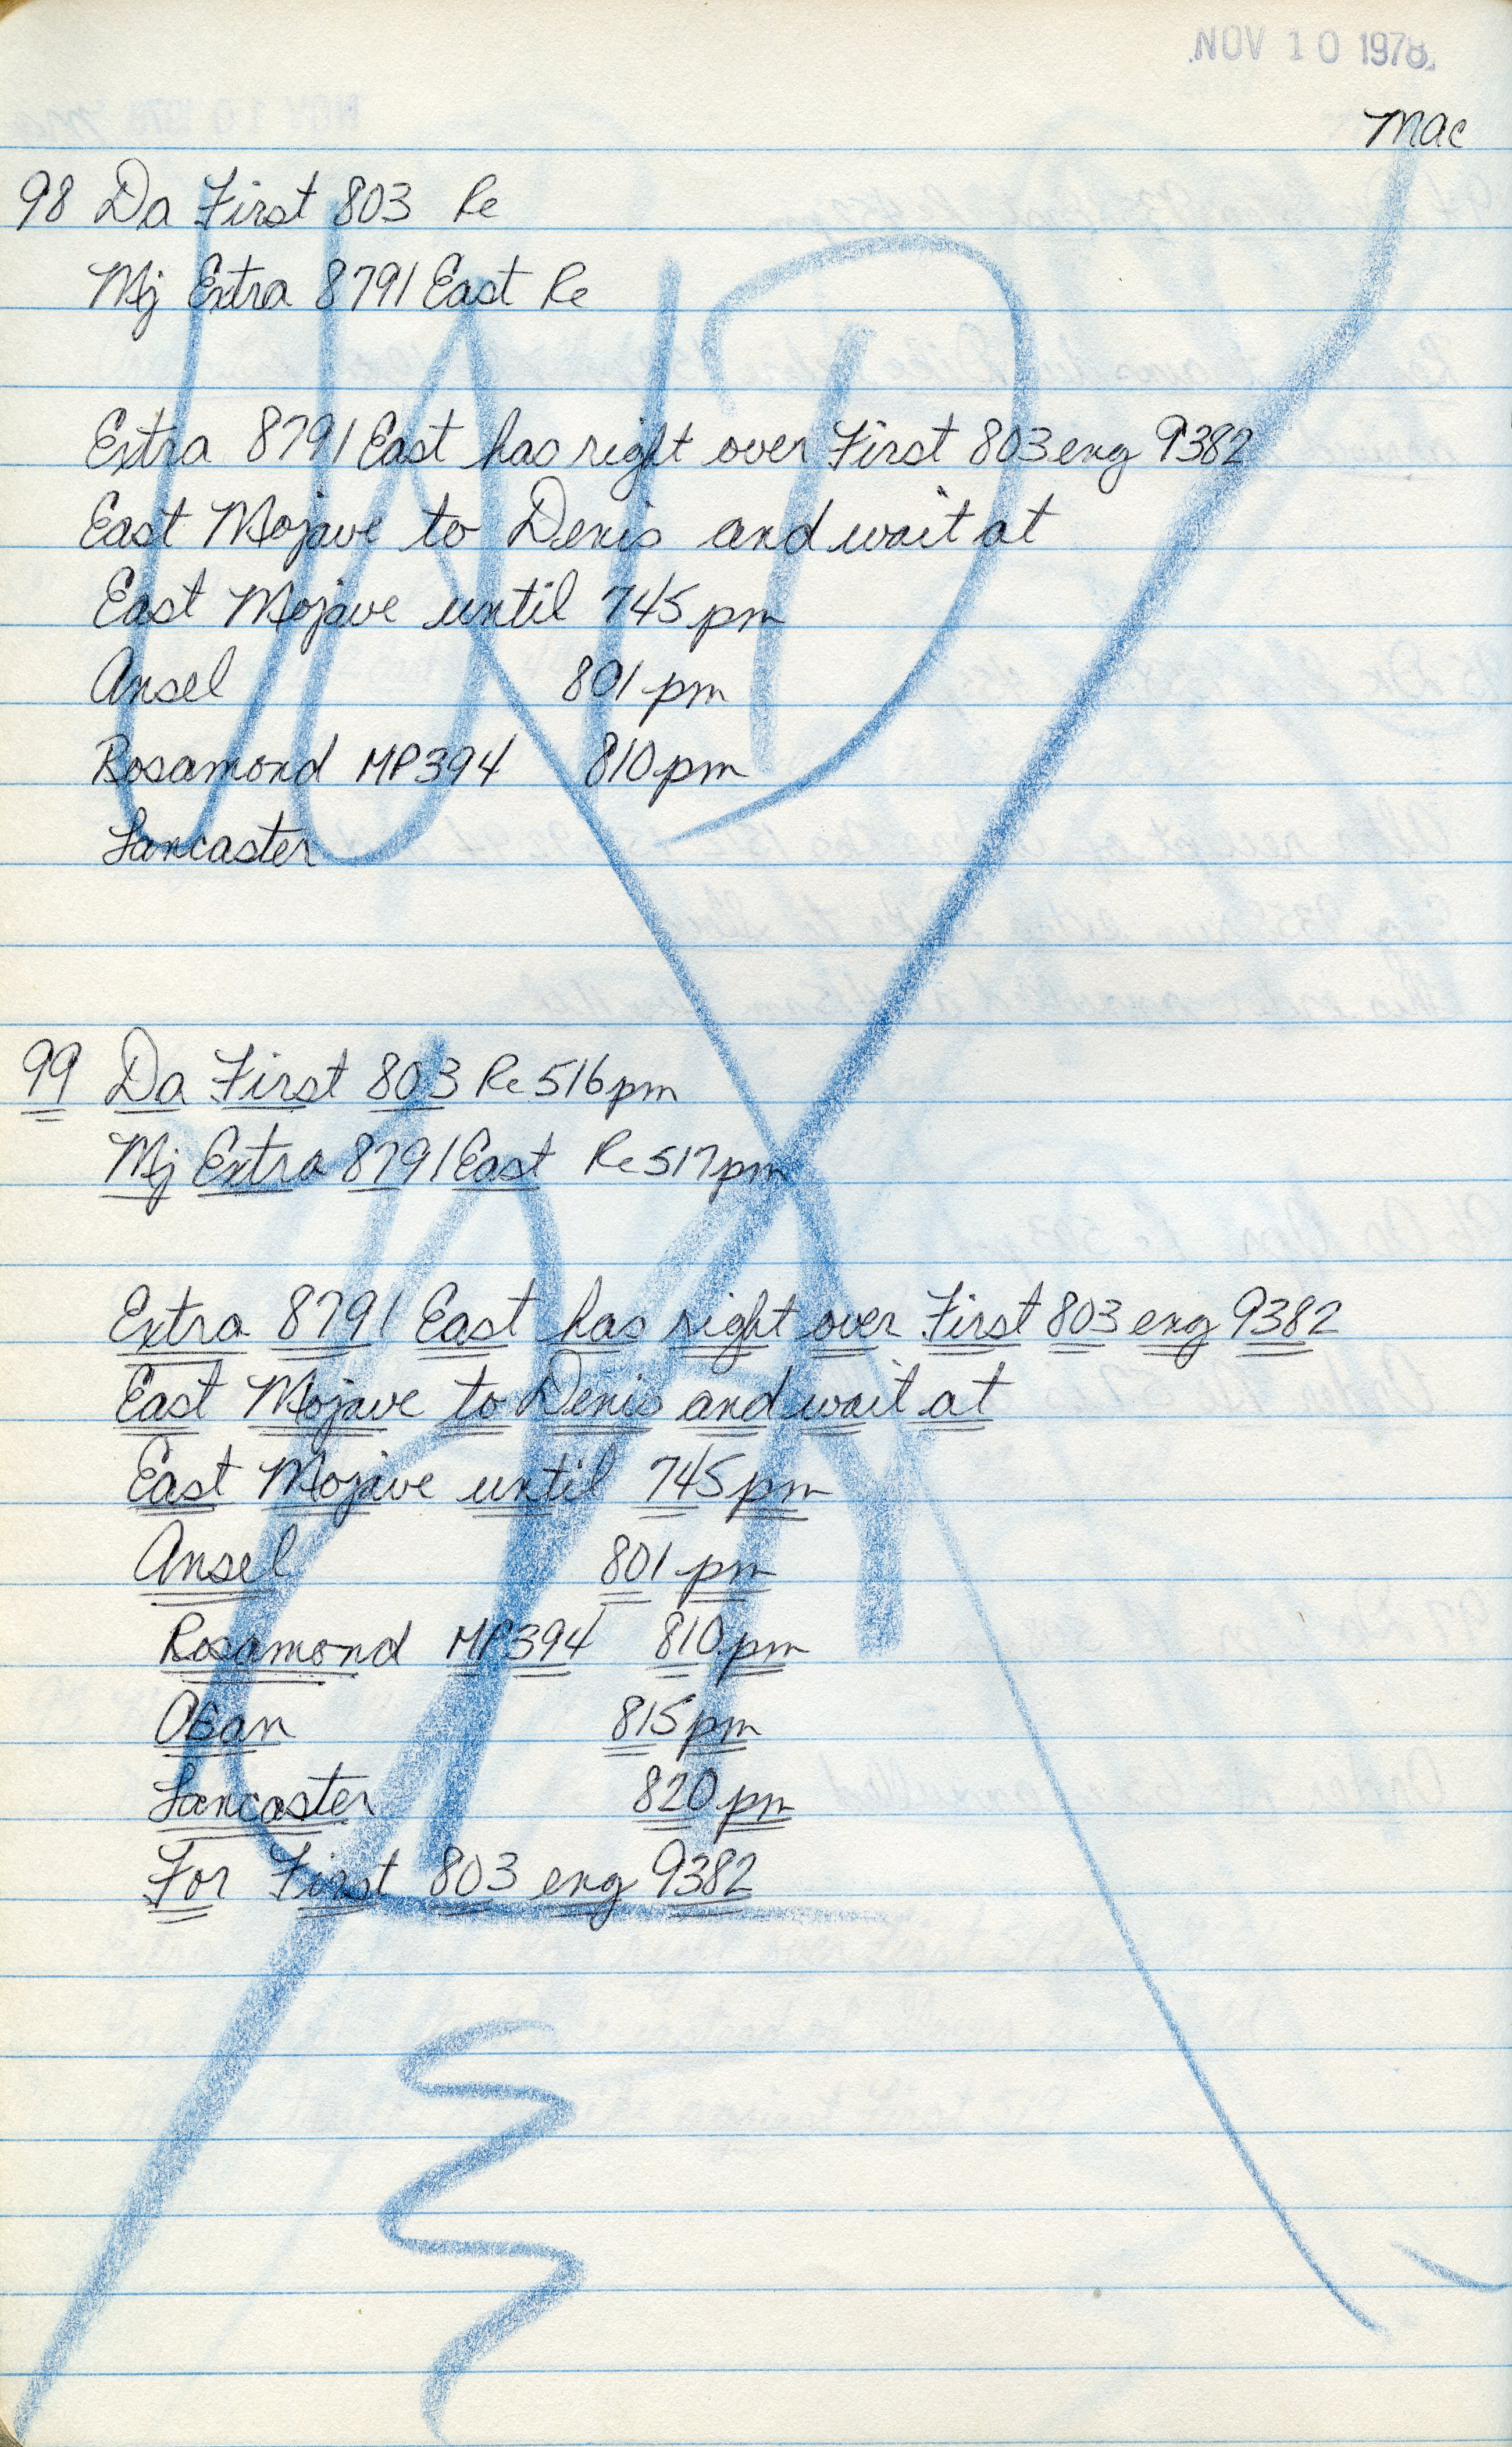 NOV 10 1978
Mac
98 Da First 803 Re
Mj Extra 8791 East Re
Extra 8791 East has right over First 803 eng 9382
East Mojave to Denis and wait at
East Mojave until 745 pm
Ansel 801 pm
Rosamond MP394 810 pm
Lancaster
99 Da First 803 Re 516 pm
Mj Extra 8791 East Re 517 pm
Extra 8791 East has right over First 803 eng 9382
East Mojave to Denis and wait at
East Mojave until 745 pm
Ansel 801 pm
Rosamond MP394 810 pm
Oban 815 pm
Lancaster 820 pm
For First 803 eng 9382